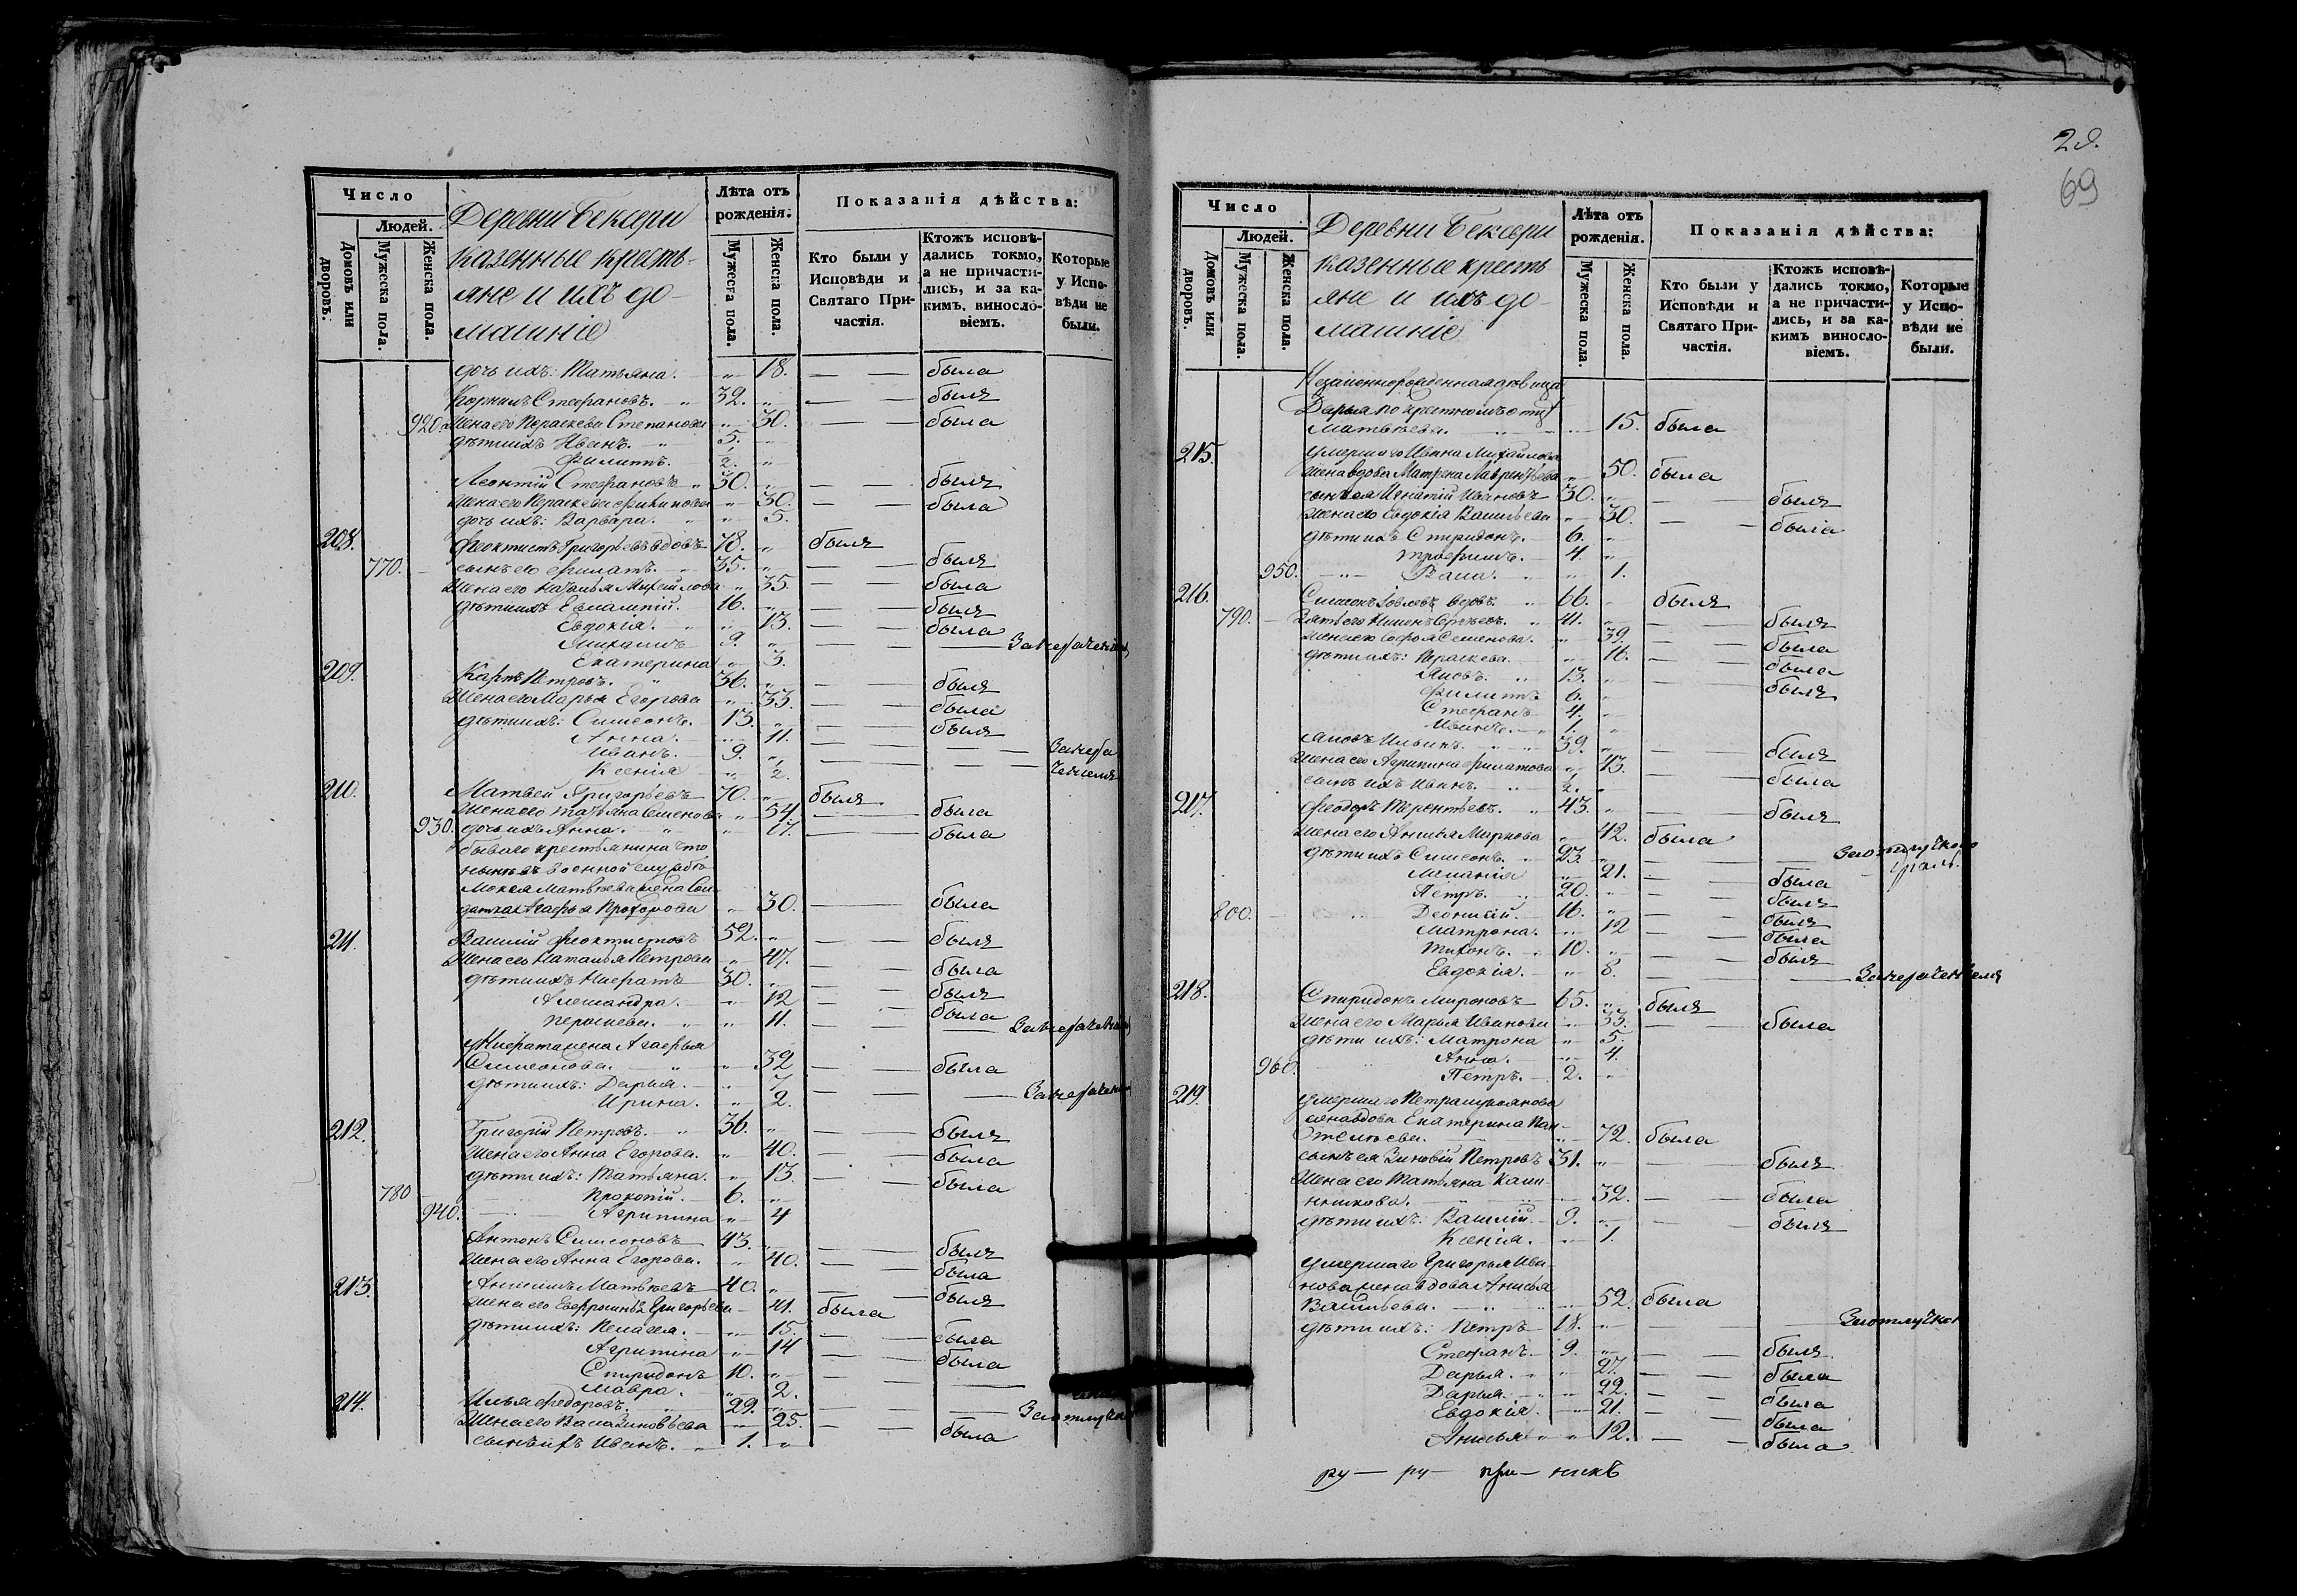 Число
Людей.
Домовъ или дворовъ.
Мужеска пола.
Женска пола.
Деревни Бексери
казенные кресть-
яне и ихъ до-
машніе
Лѣта отъ рожденія.
Мужеска пола.
Женска пола.
Показанія дѣйства:
Кто были у Исповѣди и Святаго При-частія.
Ктожъ исповѣ-дались токмо, а не причасти-лись, и за ка-кимъ, винословіемъ.
Которые у Испо-вѣди не были.
дочь ихъ: Татьяна. 18. — — была
Корнилъ Стефановъ. 32. — — былъ
920. жена его Параскева Степанова 30. — — была
дѣти ихъ Иванъ. 5.
Филиппъ. 1/2.
Леонтій Стефановъ 30. — — былъ
жена его Параскева 30. — — была
дочь ихъ: Варвара. 5.
208. Феоктистъ Григорьевъ вдовъ 78. былъ
770. сынъ его Филатъ. 35. — — былъ
жена его Наталья Михайлова 35. — — была
дѣти ихъ Евлампій. 16. — — былъ
Евдокія. 13. — — была
9. — —
Екатерина 3.
209. Карпъ Петровъ. 36. — — былъ
жена его Марья Егорова 33. — — была
дѣти ихъ: Симеонъ. 13. — — былъ
Анна. 11. — —
Иванъ. 9. — —
Ксенія 1/2.
210. Матвей Григорьевъ 70. былъ
жена его Татьяна Семенова 54. — была
930. дочь ихъ Анна. 17. — была
бываго крестьянина что
нынѣ въ военной службѣ
Мокея Матвеева жена сол
датка Агафья Прохорова 30. — — была
211. Василій Феоктистовъ 52. — — былъ
жена его Наталья Петрова 47. — — была
дѣти ихъ 30. — — былъ
Александра. 12 — — была
Параскева. 11. — —
жена Агафья
Симеонова. 32 — — была
дѣти ихъ: Дарья. 7 — —
Ирина. 2.
212. Григорій Петровъ. 36. — — былъ
жена его Анна Егорова. 40. — — была
дѣти ихъ: Татьяна. 13. — — была
780 Прокопій. 6.
940. Агрипина 4
Антонъ Симеоновъ 43. — — былъ
жена его Анна Егорова. 40. — — была
213. Анисимъ Матвѣевъ 40. — — былъ
жена его Евфросинья Григорьева 41. была
дѣти ихъ: Пелагея. 15. — — была
Агрипина 14 — — была
Спиридонъ 10. — —
Мавра. 2.
214. Илья Федоровъ. 29. — —
жена его Васа Зиновьева 25. — — была
сынъ ихъ Иванъ. 1.
29.
69
Число
Людей.
Домовъ или дворовъ.
Мужеска пола.
Женска пола.
Деревни Бексери
казенные кресть
яне и ихъ до-
машніе
Лѣта отъ рожденія.
Мужеска пола.
Женска пола.
Показанія дѣйства:
Кто были у Исповѣди и Святаго При-частія.
Ктожъ исповѣ-дались токмо, а не причасти-лись, и за ка-кимъ виносло-віемъ.
Которые у Испо-вѣди не были.
Незаконнорожденная дѣвица
Дарья по крестномъ отцѣ
Матвѣева. 15. была
215. умершаго Ивана Михайлова
жена вдова Матрена Лаврентьева 50. была
сынъ ея Игнатій Ивановъ 30. — — былъ
жена его Евдокія Васильева 30. — — была
дѣти ихъ Спиридонъ. 6.
Трофимъ. 4.
950. Васа. 1.
216. Симеонъ вдовъ. 66. былъ
790. зять его 41. — — былъ
жена его Софья Семенова. 39. — — была
дѣти ихъ: Параскева. 16. — — была
Яковъ. 13. — — былъ
Филиппъ 6.
Стефанъ 4.
Иванъ. 1.
Яковъ Ильинъ. 39. — — былъ
жена его Агрипина Филатова 43. — — была
сынъ ихъ Иванъ. 1/2.
217. Феодоръ Терентьевъ. 43. — — былъ
жена его Анисья Миронова 42. была
дѣти ихъ Симеонъ. 23 — —
Меланія 21. — — была
Петръ. 20. — — былъ
800. Деонисій. 16. — — былъ
Матрона. 12 — — была
Тихонъ. 10. — — былъ
Евдокія. 8. —
218. Спиридонъ Мироновъ 65. былъ
жена его Марья Иванова 33. — — была
дѣти ихъ: Матрона 5.
Анна. 4.
960. Петръ. 2.
219. умершаго Петра
жена вдова Екатерина Пан-
телѣева. 72. была
сынъ ея Зиновій Петровъ 31. — — былъ
жена его Татьяна Кали-
никова. 32. — — была
дѣти ихъ: Василій. 9. — — былъ
Ксенія. 1.
умершаго Григорья Ива-
нова жена вдова Анисья
Васильева. 52. была
дѣти ихъ: Петръ 18. — —
Стефанъ. 9. — — былъ
Дарья. 27. — — была
Дарья. 22. — — была
Евдокія. 21. — — была
Анисья 12. — — была
ру — ру — при — никъ